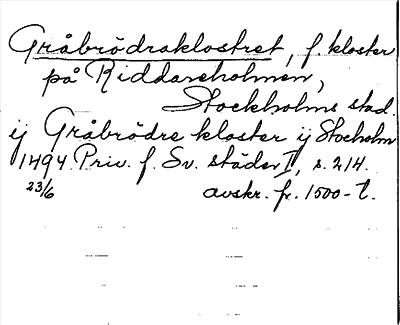 Gråbrödraklostret, f. kloster
på Riddareholmen,
Stockholms stad.
ij Gråbrödre kloster ij Stocholm
1494 Priv. f. Sv. städer II, s. 214.
23/6 avskr. fr. 1500-t.